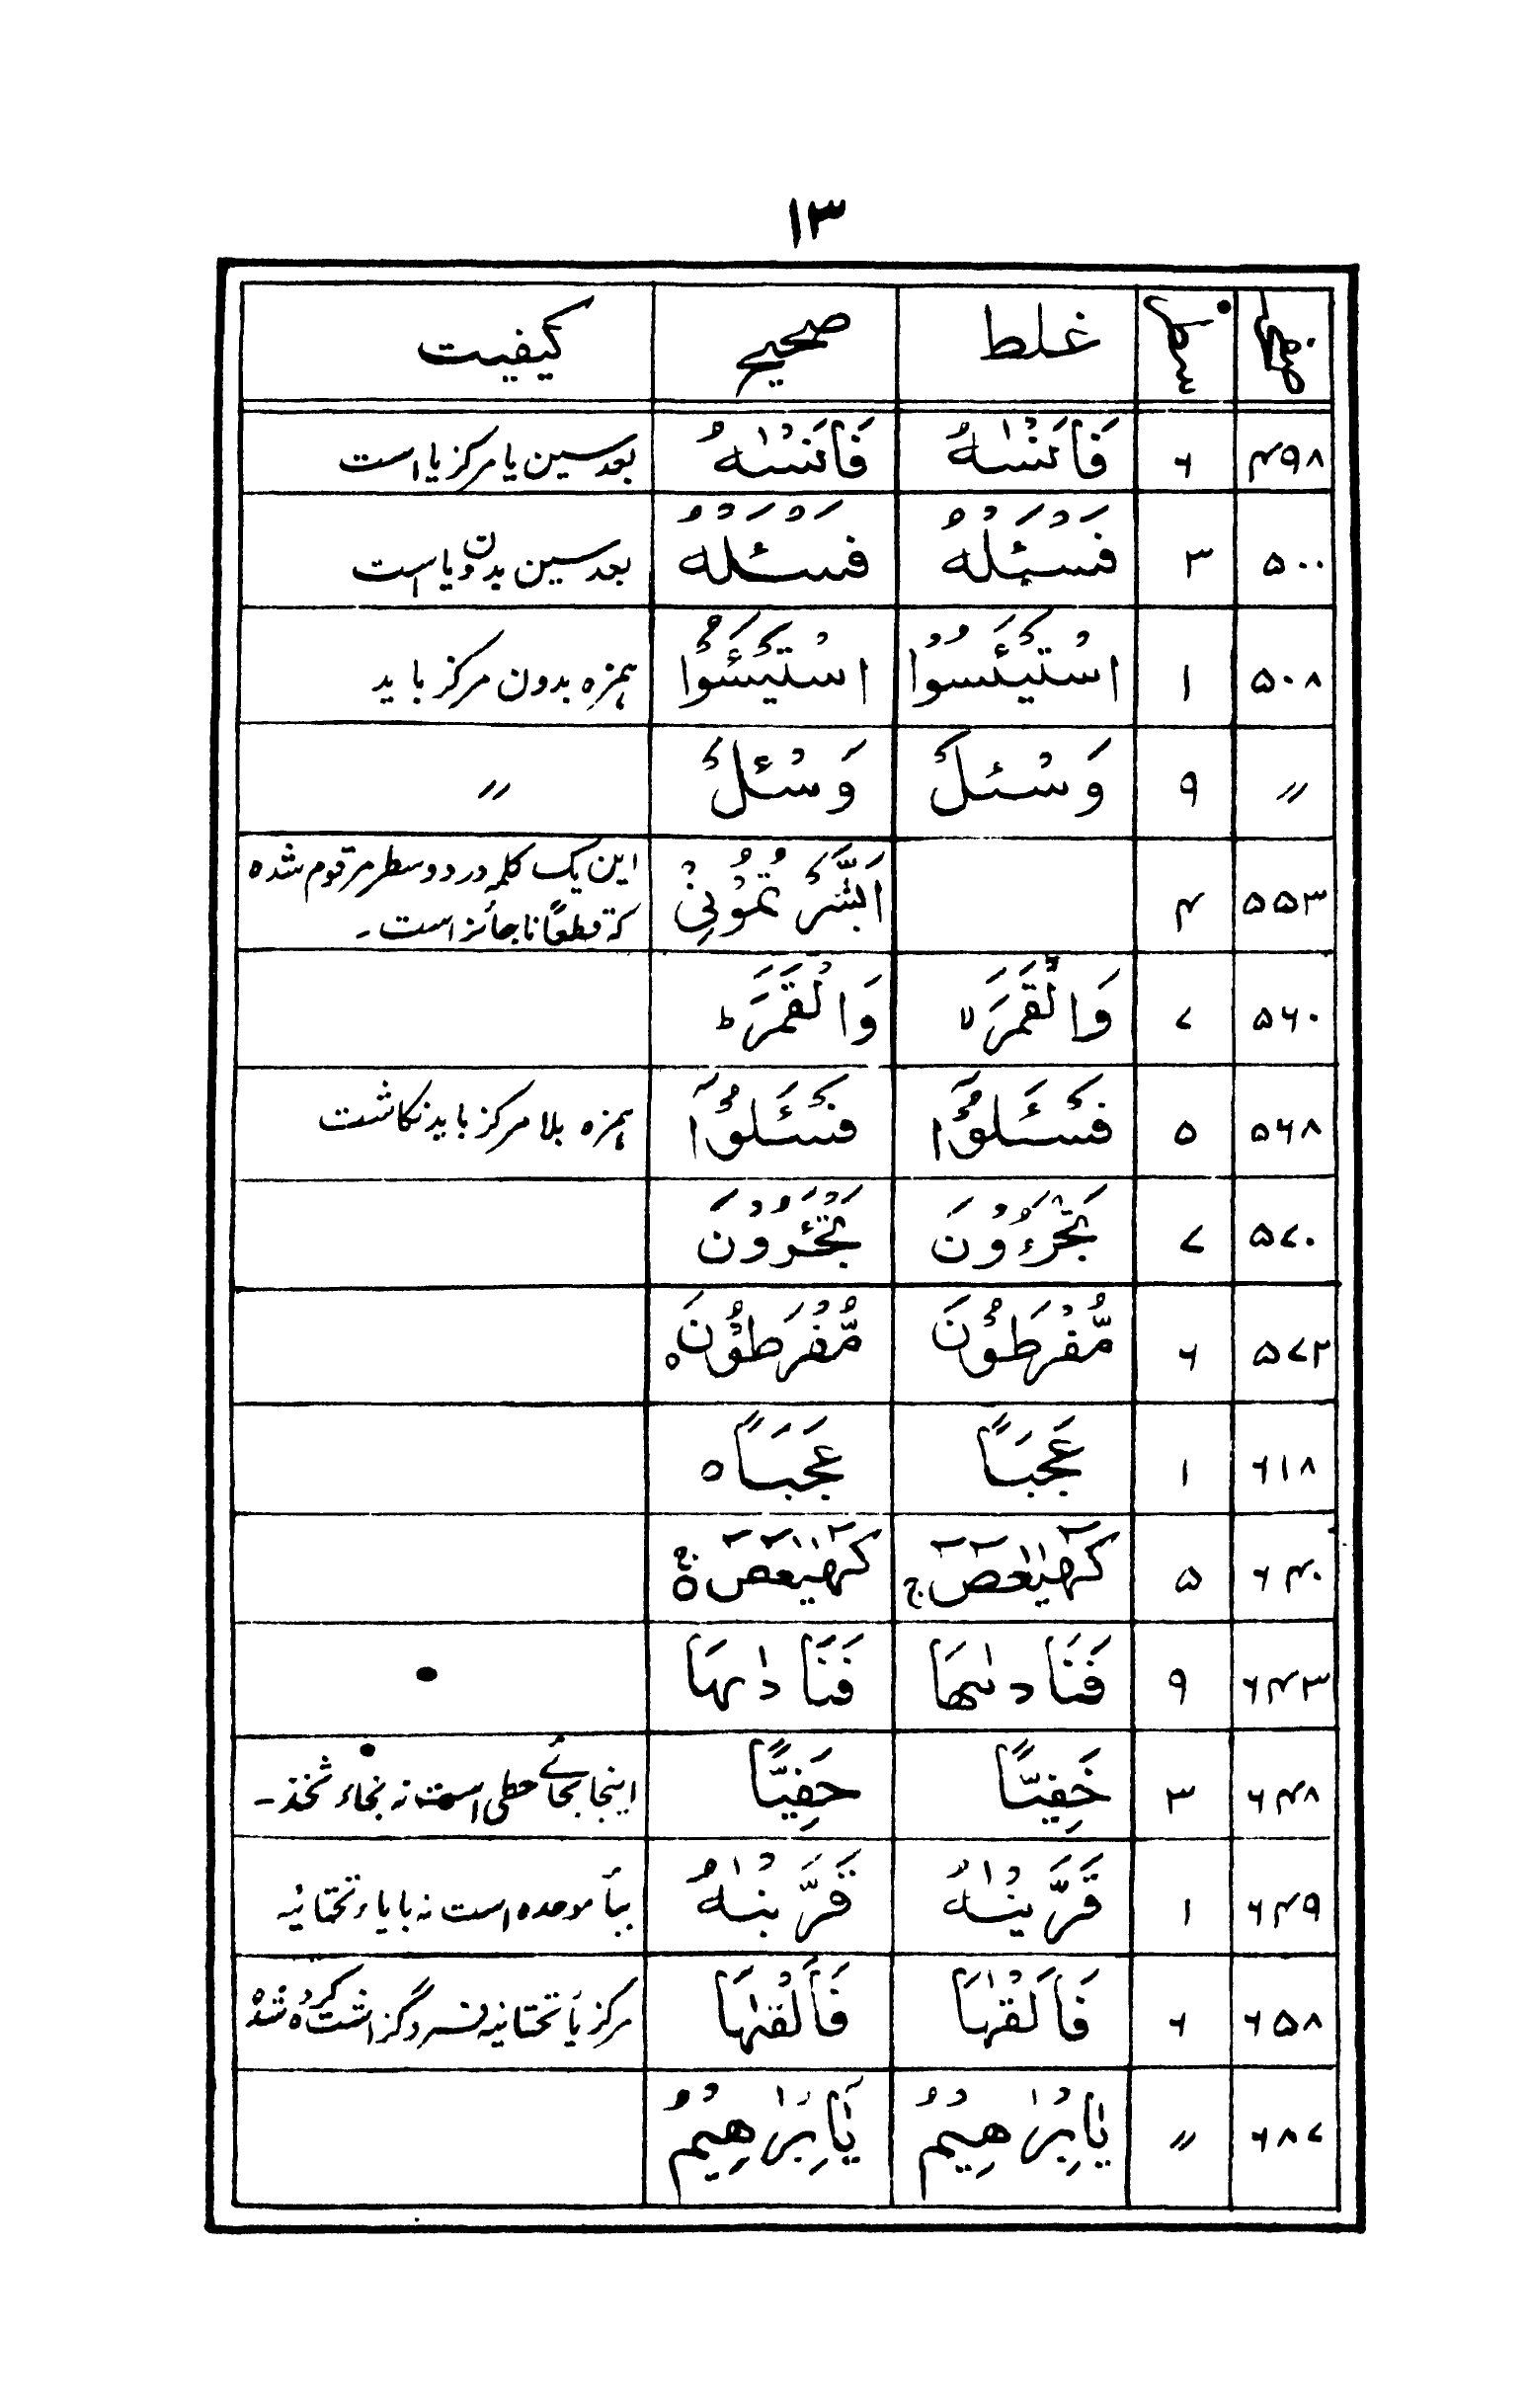 ۱۳
صفحہ سطر غلط صحیح کیفیت
۴۹۸ ۶ فَاَنْسٰىهُ فَاَنْسٰىهُ بعد سین یا مرکز یا است
۵۰۰ ۳ فَسْئَلْهُ فَسْئَلْهُ بعد سین بدون یا است
۵۰۸ ۱ اسْتَيْئَسُوْا اسْتَيْئَسُوْا ہمزہ بدون مرکز باید
〃 ۹ وَسْئَلْ وَسْئَلْ 〃
۵۵۳ ۴ اَبَشَّرْتُمُوْنِيْ این یک کلمہ در دو سطر مرقوم شدہ
کہ قطعًا ناجائز است ۔
۵۶۰ ۷ وَالْقَمَرَ ۙ وَالْقَمَرَ ؕ
۵۶۸ ۵ فَسْئَلُوْۤا فَسْئَلُوْۤا ہمزہ بلا مرکز باید نگاشت
۵۷۰ ۷ تَجْرَءُوْنَ تَجْئَرُوْنَ
۵۷۲ ۶ مُّفْرَطُوْنَ مُّفْرَطُوْنَ ہ
۶۱۸ ۱ عَجَبًا عَجَبًا ہ
۶۴۰ ۵ كٓهٰيٰعٓصٓ ۚ كٓهٰيٰعٓصٓ ۚ ۃ
۶۴۳ ۹ فَنَادٰىهَا فَنَادٰىهَا
۶۴۸ ۳ خَفِيًّا حَفِيًّا اینجا بجائے حطی است نہ بخاء ثخذ ۔
۶۴۹ ۱ قَرَّيْنٰهُ قَرَّبْنٰهُ ببأ موحدہ است نہ با یاء تحتانیہ
۶۵۸ ۶ فَاَلْقٰهَا فَاَلْقٰىهَا مرکز یأ تحتانیہ گزاشت کردہ شدہ
۶۸۷ 〃 يٰاِبْرٰهِيْمُ يٰاِبْرٰهِيْمُ